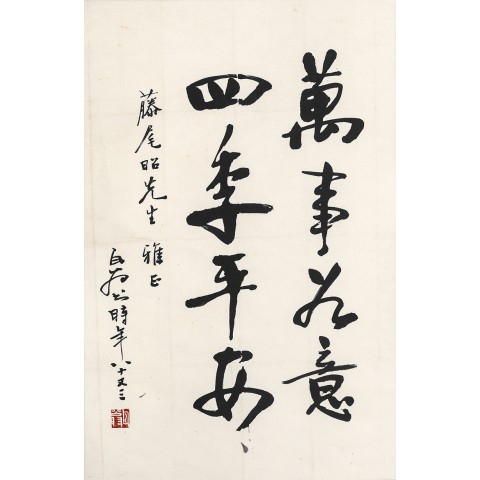 萬事如意
四季平安
藤尾昭先生 雅正
书時年八十又三